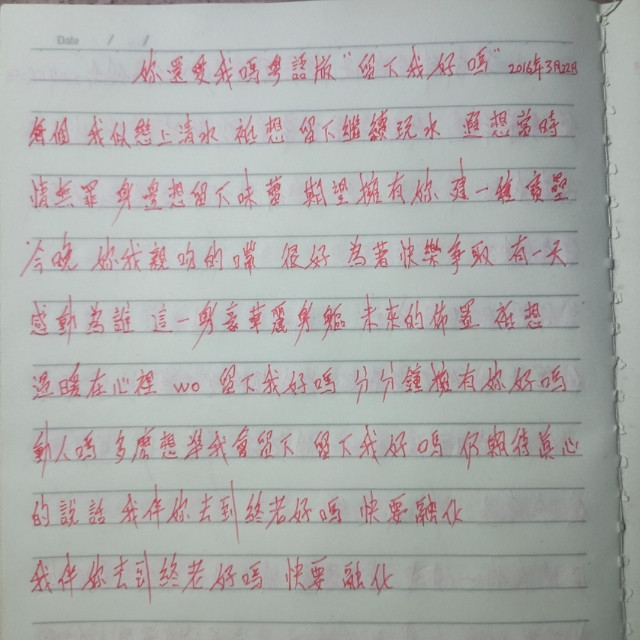 Date / /
你還愛我嗎粵語版"留下我好嗎" 2016年3月22日
每個 我似戀上清水 祗想 留下繼續玩水 遐想當時
情無罪 身邊想留下味蕾 期望擁有你 建一種寶壘
今晚 你我親吻的嘴 很好 為著快樂爭取 有一天
感動為誰 這一身豪華麗身軀 未來的佈置 祗想
溫暖在心裡 wo 留下我好嗎 分分鐘擁有你好嗎
動人嗎 多麼想準我會留下 留下我好嗎 仍期待真心
的說話 我伴你去到終老好嗎 快要融化
我伴你去到終老好嗎 快要融化